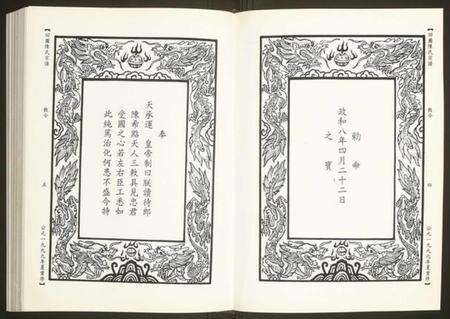 陳氏宗譜
四
公元一九九九年夏重修
勅命
政和八年四月二十二日
之寶
奉
天承運 皇帝制曰朕讀待郎
陳希點天人三教具見忠君
愛國之心若左右臣工悉如
此純篤治化何患不盛今特
陳氏宗譜
五
公元一九九九年夏重修